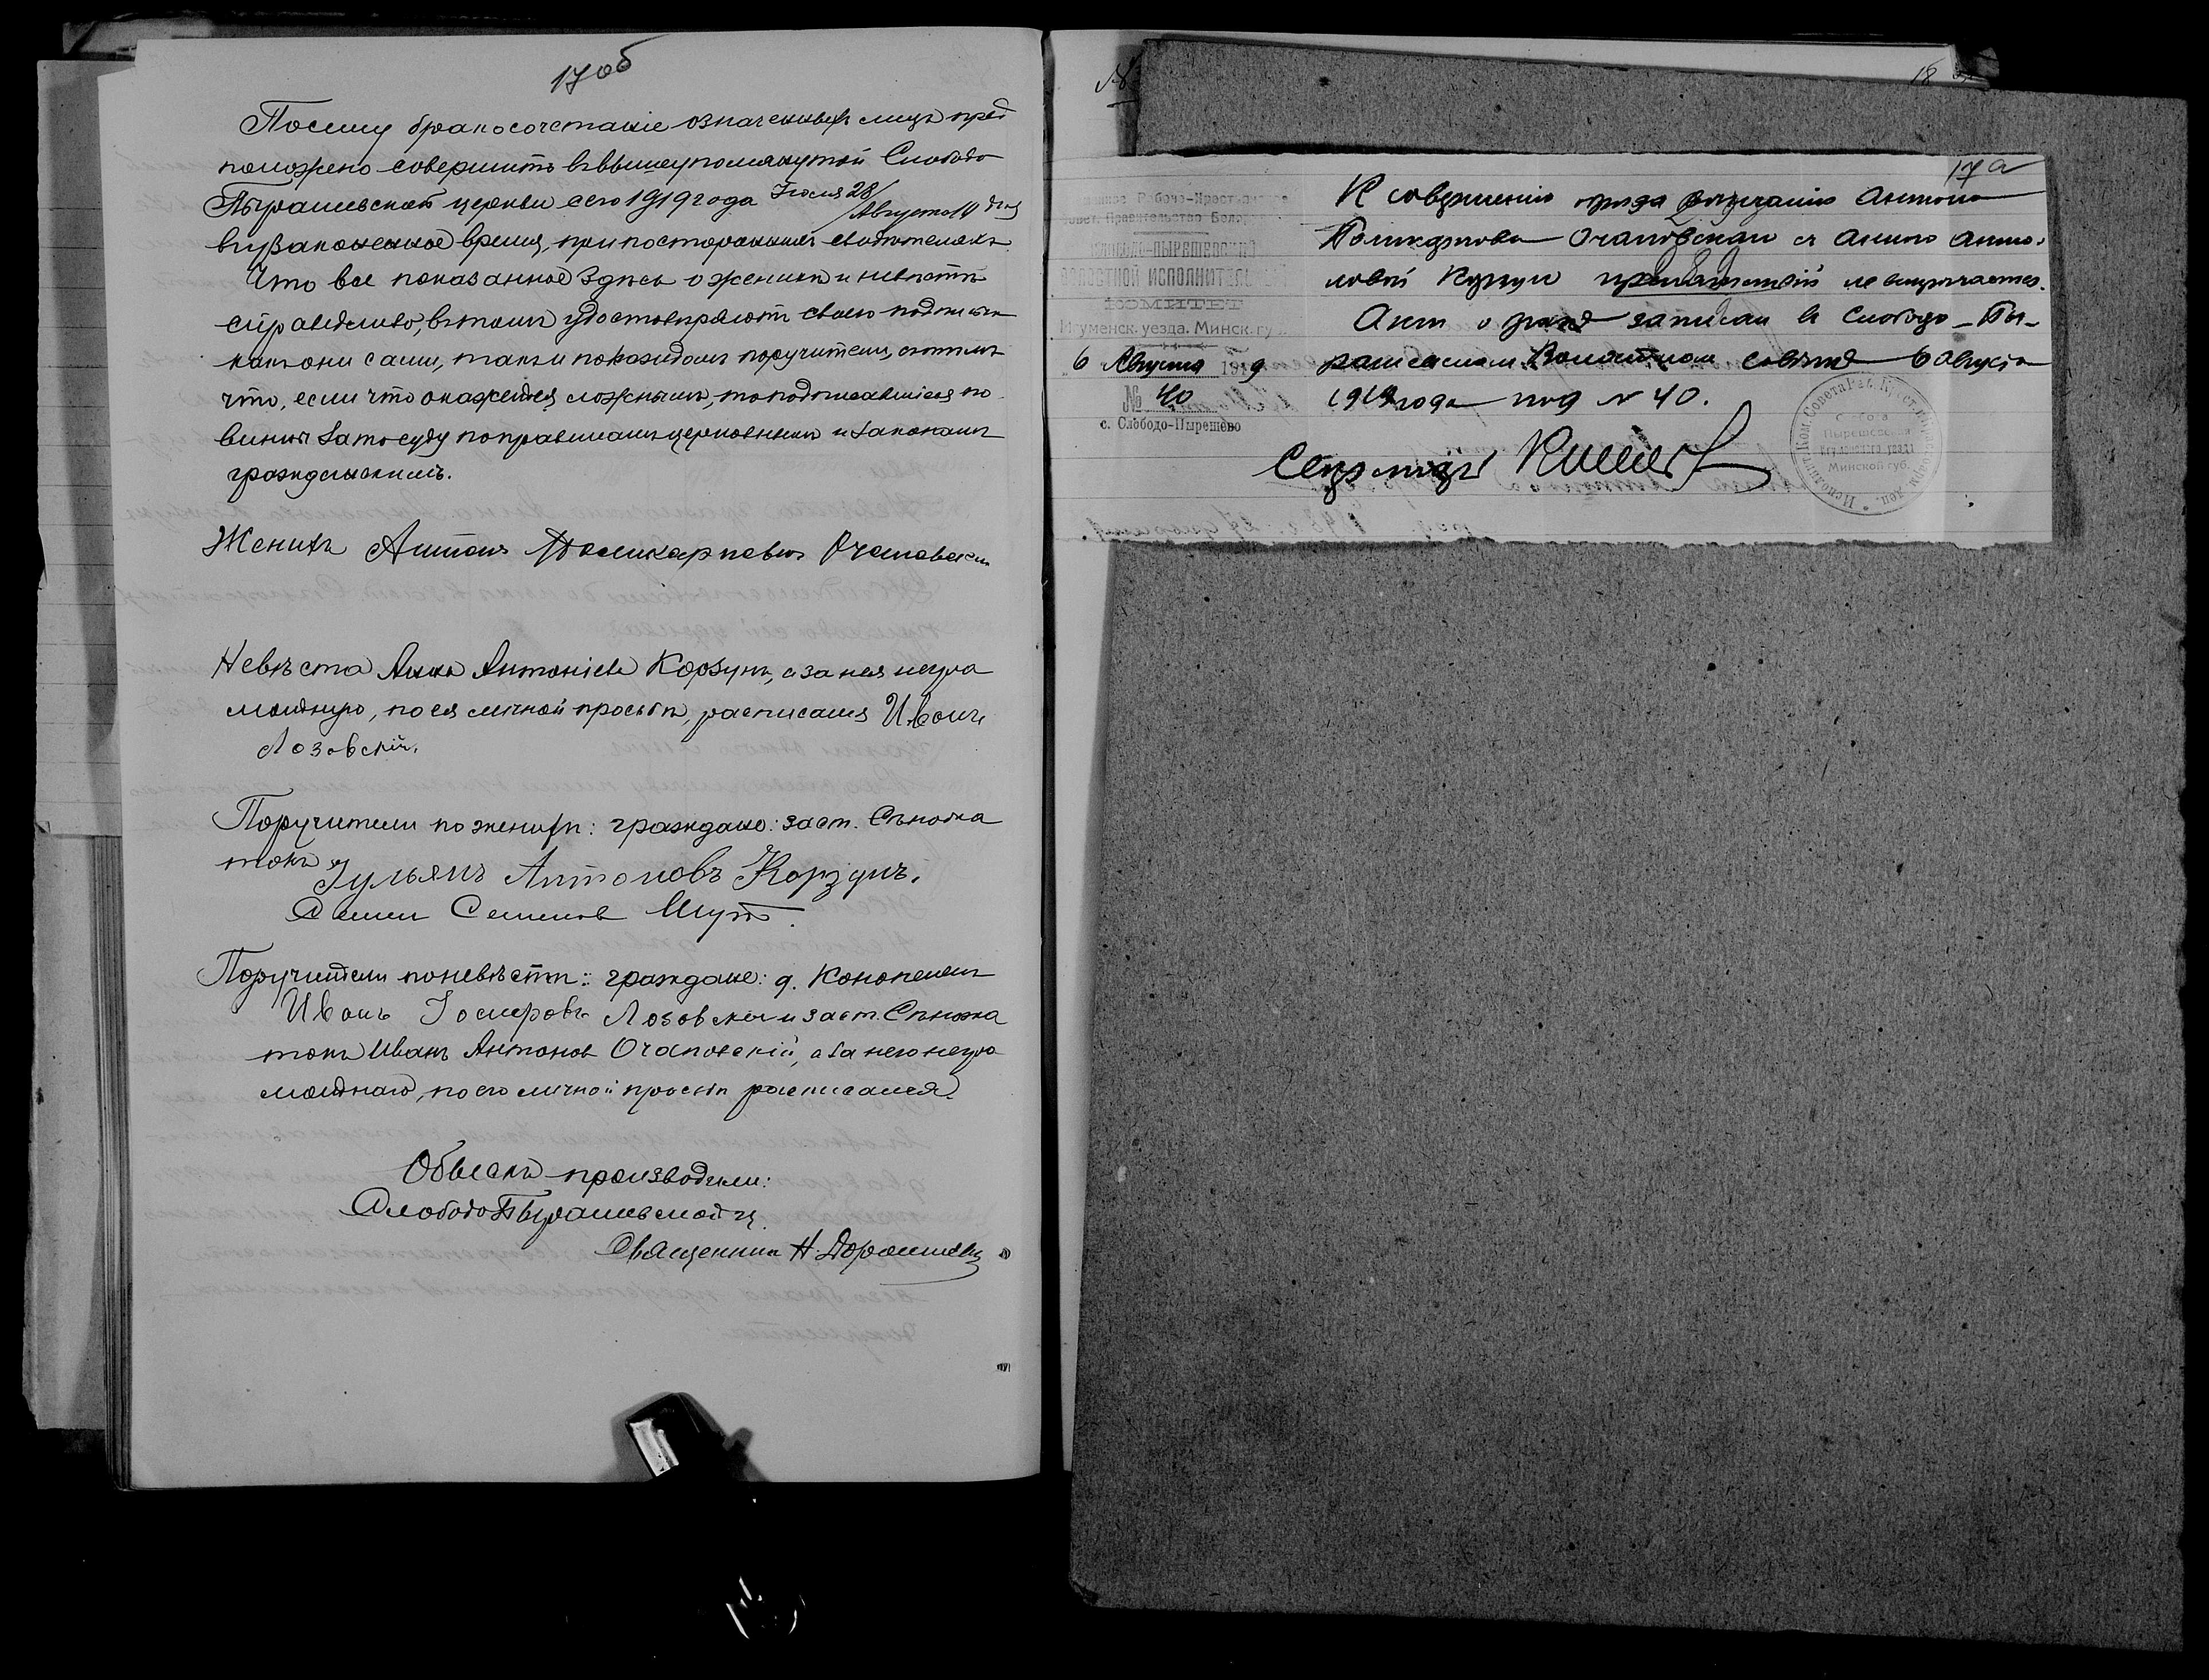 17 об
Посему бракосочетаніе означенныхъ лицъ пред
положено совершить въ вышеупомянутой Слободо
Пырашевской церкви сего 1919 года Іюля 28/
Августа 14 дня
въ узаконенное время, при постороннихъ свидѣтеляхъ
Что все показанное здѣсь о женихѣ и невѣстѣ
справедливо, въ томъ удостовѣряютъ своею подписью
какъ они сами, такъ и по каждомъ поручители, съ тѣмъ
что, если что окажется ложнымъ, то подписавшіеся по
винны за то суду по правиламъ церковнымъ и законамъ
гражданскимъ.
Женихъ Антонъ Поликарповъ Очаповски
Невѣста Анна Антоніева Корзунъ, а за нея негра
мотную, по ея личной просьбѣ, расписался Иванъ
Лозовскій.
Поручители по женихѣ: граждане: заст. Сѣножа
токъ
Іульянъ Антоновъ Корзунъ.
Семен Шут
Поручители по невѣстѣ: граждане: д.
Иванъ Лозовскій и заст. Сѣножа
токъ Иванъ Антонов Очаповскій, а за него негра
мотнаго, по его личной просьбѣ расписался
Обыскъ производили:
Слободо Пырашевской ц.
Священникъ Н.
18
17 а
Рабоче-Крестьянское
Совет. Правительство Белор
СЛОБОДО-ПЫРЕШЕВСКИЙ
ВОЛОСТНОЙ ИСПОЛНИТЕЛЬНЫЙ
КОМИТЕТ
Игуменск. уезда. Минск. гу
6 Августа 1919
№ 40
с. Слободо-Пырешево
К совершению обряда венчания Антона
Поликарпова Очаповскаго с Анною Анто-
новой Корзун препятствий не встречается.
Акт о браке записан в Слободо-Пы-
рашевском Волостном совете 6 августа
1919 года под № 40.
Секретарь
Исполнит. Ком. Совета Раб. Крест.
Слобода
Пырешевская
Игуменского уезда
Минской губ.